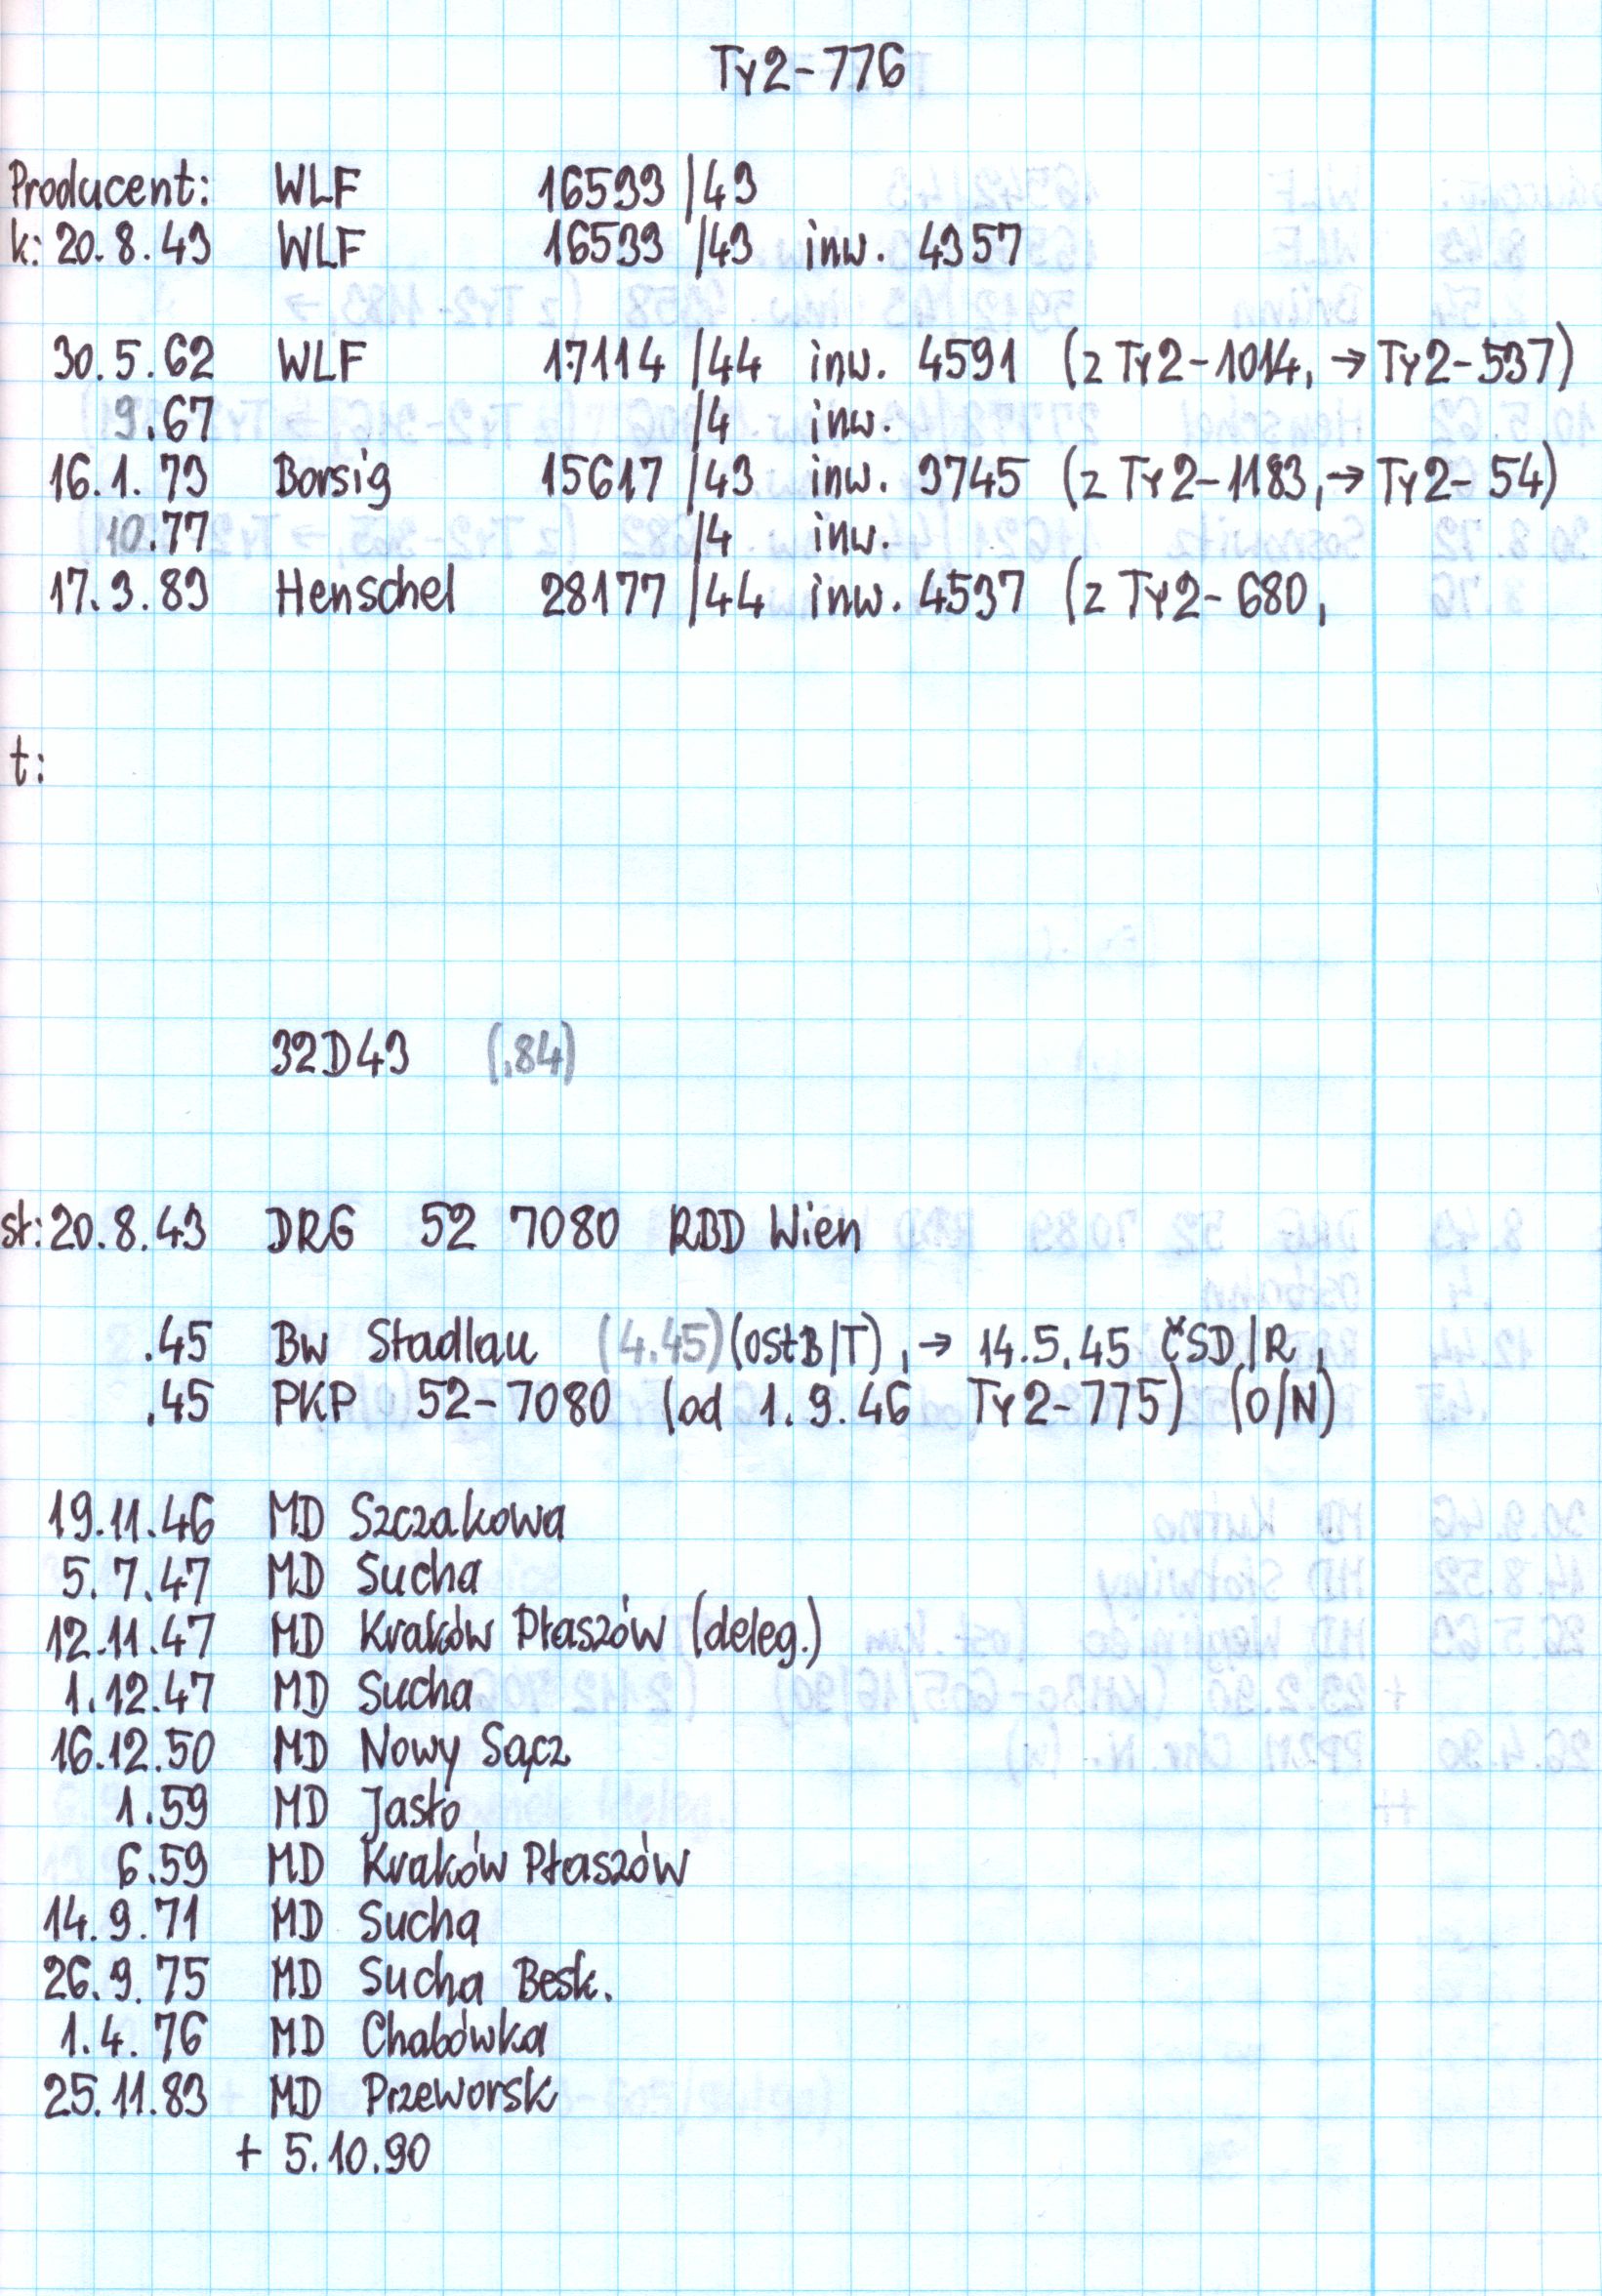 Ty2-776
Producent: WLF 16533 /43
k: 20.8.43 WLF 16533 /43 inw. 4357
30.5.62 WLF 17114 /44 inw. 4591 (z Ty2-1014, → Ty2-537)
9.67 /4 inw.
16.1.73 Borsig 15617 /43 inw. 3745 (z Ty2-1183, → Ty2-54)
10.77 /4 inw.
17.3.83 Henschel 28177 /44 inw. 4537 (z Ty2-680,
t:
32D43 (.84)
st: 20.8.43 DRG 52 7080 RBD Wien
.45 Bw Stadlau (4.45) (OstB/T), → 14.5.45 ČSD/R,
.45 PKP 52-7080 (od 1.9.46 Ty2-775) (O/N)
19.11.46 MD Szczakowa
5.7.47 MD Sucha
12.11.47 MD Kraków Płaszów (deleg.)
1.12.47 MD Sucha
16.12.50 MD Nowy Sącz
1.59 MD Jasło
6.59 MD Kraków Płaszów
14.9.71 MD Sucha
26.9.75 MD Sucha Besk.
1.4.76 MD Chabówka
25.11.83 MD Przeworsk
+ 5.10.90